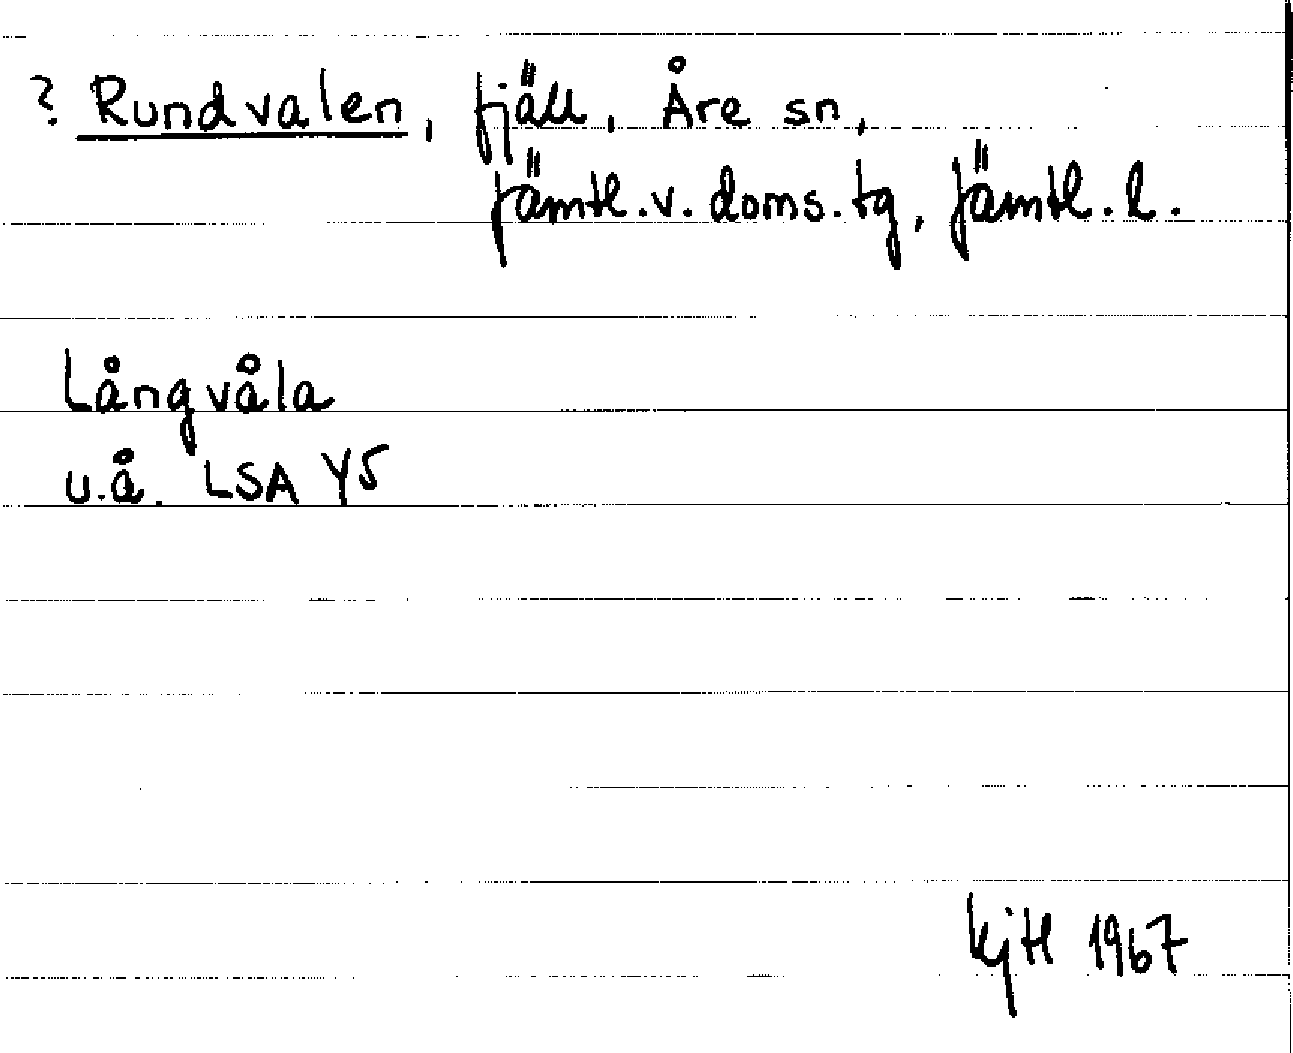 ? Rundvalen, fjäll, Åre sn,
Jämtl. v. doms. tg, Jämtl. l.
Långvåla
u.å. LSA Y5
kjtl 1967